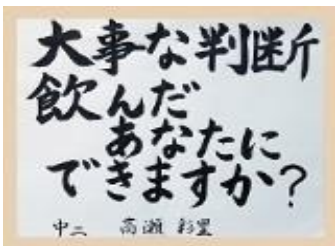 大事な判断
飲んだ
あなたに
できますか?
中二 高瀬 彩里